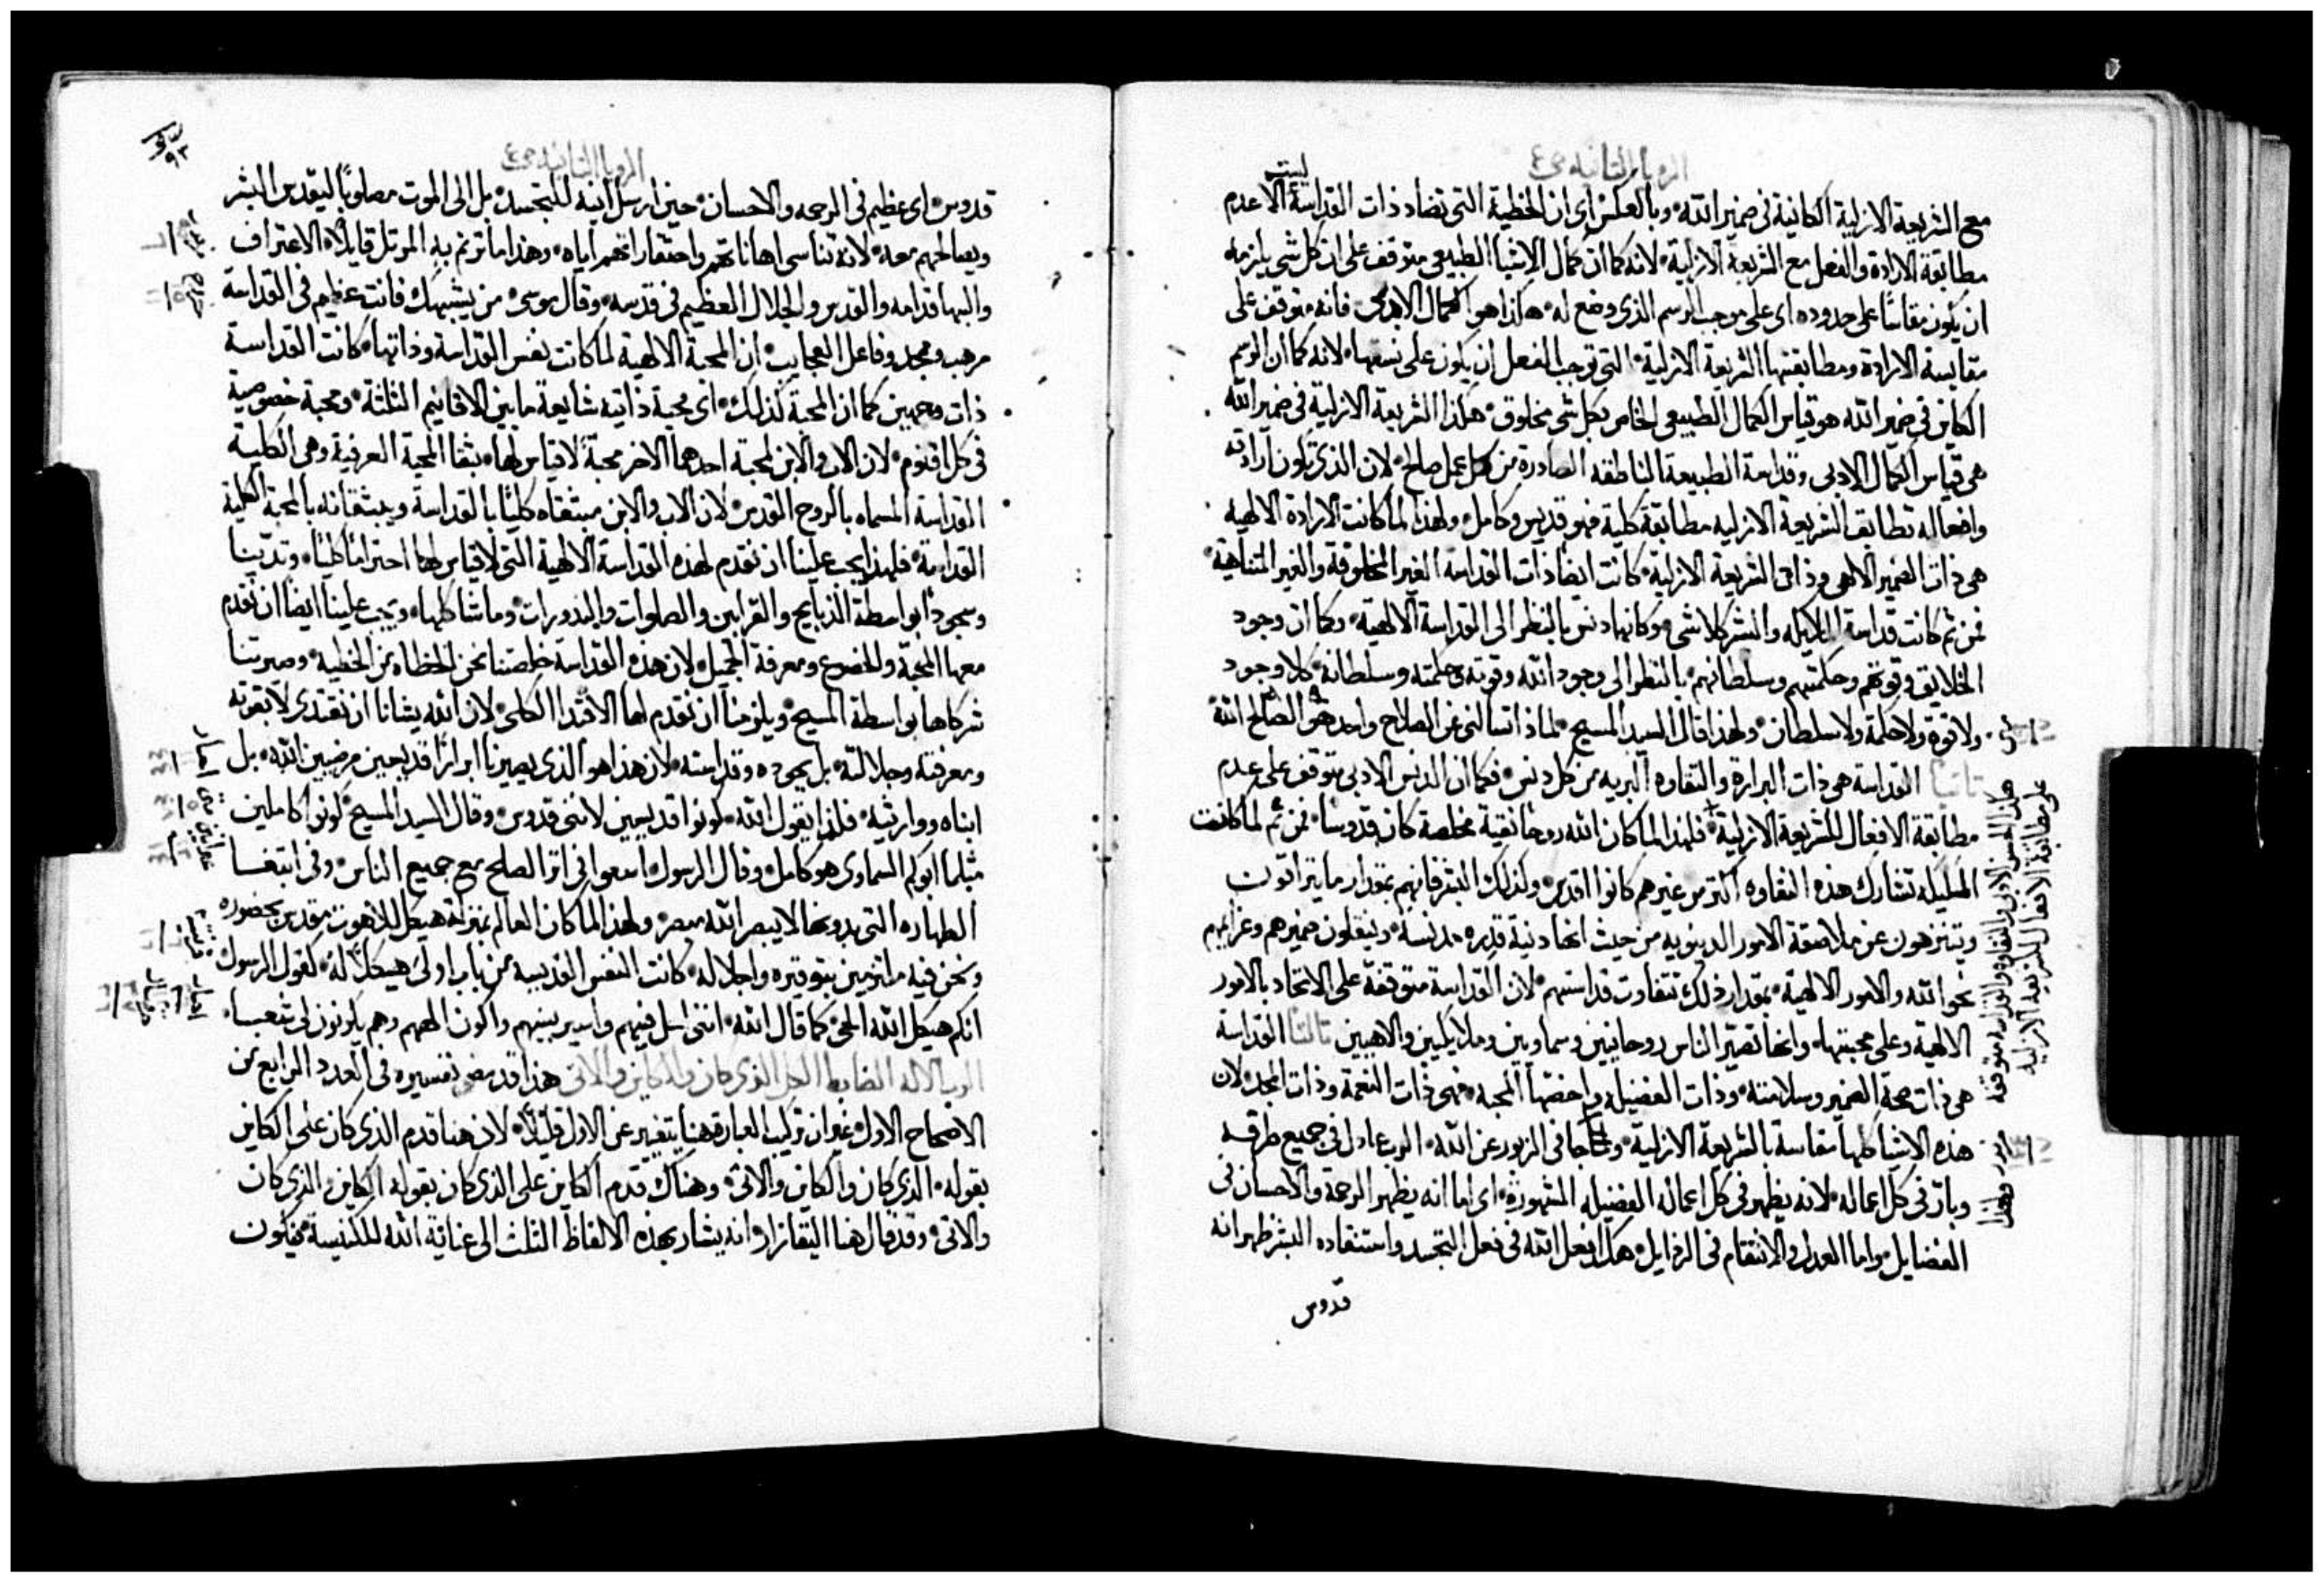 الرويا الثانيه ص ع
ليست
مع الشريعة الازلية الكاينة في ضمير الله وبالعكس اي ان الخطية التي تضاد ذات القداسة الا عدم
مطابقة الارادة والفعل مع الشريعة الازلية لانه كما ان كمال الاشيا الطبيعي متوقف على ان كل شي يلزمه
ان يكون مقاسًا على حدوده اي على موجب الرسم الذي وضع له هكذا هو الكمال الادبي فانه متوقف على
مقايسة الارادة ومطابقتها الشريعة الازلية التي توجب الفعل ان يكون على نسقها لانه كما ان الرسم
الكاين في ضمير الله هو قياس الكمال الطبيعي الخاص بكل شي مخلوق هكذا الشريعة الازلية في ضمير الله
هي قياس الكمال الادبي وقداسة الطبيعة الناطقه الصادرة من كل عمل صالح لان الذي تكون ارادته
وافعاله تطابق الشريعة الازليه مطابقة كلية فهو قديس وكامل ولهذا لما كانت الارادة الالهية
هي ذات الضمير الالهي وذات الشريعة الازلية كانت ايضا ذات القداسة الغير المخلوقة والغير المتناهية
فمن ثم كانت قداسة الملايكه والبشر كلا شي وكانها دنس بالنظر الى القداسة الالهية وكما ان وجود
الخلايق وقوتهم وحكمتهم وسلطانهم بالنظر الى وجود الله وقوته وحكمته وسلطانه كلا وجود
ولا قوة ولا حكمة ولا سلطان ولهذا قال السيد المسيح لماذا تسالني عن الصلاح واحد هو الصالح الله
ثانيًا القداسة هي ذات البرارة والنقاوه البريه من كل دنس فكما ان الدنس الادبي متوقف على عدم
مطابقة الافعال للشريعة الازلية فلهذا لما كان الله روحًا نقية مخلصة كان قدوسًا فمن ثم لما كانت
الملايكه تشارك هذه النقاوه اكثر من غيرهم كانوا اقدس وكذلك البشر فانهم بمقدار ما يتراقون
ويتنزهون عن ملاصقة الامور الدنيويه من حيث انها دنية قذره مدنسة وينقلون ضميرهم وعزايمهم
نحو الله والامور الالهية بمقدار ذلك تتفاوت قداستهم لان القداسة متوقفة على الاتحاد بالامور
الالهية وعلى محبتها وانها تصير الناس روحانيين وسماويين وملايكيين والاهيين ثالثًا القداسة
هي ذات صحة الضمير وسلامته وذات الفضيله واخصها المحبه فهي ذات النعمة وذات المجد لان
هذه الاشيا كلها مقاسة بالشريعة الازلية ولهذا جا في الزبور عن الله الرب عادل في جميع طرقه
وبار في كل اعماله لانه يظهر في كل اعماله الفضيله المشهورة اي اما انه يظهر الرحمة والاحسان في
الفضايل واما العدل والانتقام في الرذايل هكذا فعل الله في فعل التجسد واستنقاده البشر ظهر انه
قدوس
هكذا الحسن الادبي والنقاوه والبرارة متوقفه
على مطابقة الافعال للشريعة الازليه
الرويا الثانيه ص ع
٩٣
قدوس اي عظيم في الرحمه والاحسان حين ارسل ابنه للتجسد بل الى الموت مصلوبًا ليقدس البشر
ويصالحهم معه لانه تناسى اهاناتهم واحتقاراتهم اياه وهذا ما ترنم به المرتل قايلًا الاعتراف
والبها قدامه والقدس والجلال العظيم في قدسه وقال موسى من يشبهك فانت عظيم في القداسة
مرهب وممجد وفاعل العجايب ان المحبة الالهية لما كانت نفس القداسة وذاتها كانت القداسة
ذات وجهين كما ان المحبة كذلك اي محبة ذاتيه شايعة ما بين الاقانيم الثلثة ومحبة خصوصية
في كل اقنوم لان الاب والابن لمحبة احدهما الاخر محبةً لا قياس لها بثقا المحبة العرفية وهي الكلية
القداسة المسماه بالروح القدس لان الاب والابن مبثقاه كليًا بالقداسة ويبثقانه بالمحبة الكلية
القداسة فلهذا يجب علينا ان نقدم لهذه القداسة الالهية التي لا قياس لها احترامًا كليًا وتدينا
وسجودًا بواسطة الذبايح والقرابين والصلوات والندورات وما شاكلها ويجب علينا ايضا ان نقدم
معها المحبة والخضوع ومعرفة الجميل لان هذه القداسة خلصتنا نحن الخطاه من الخطيه وصيرتنا
شركاها بواسطة المسيح ويلزمنا ان نقدم لها الاقتدا الكلي لان الله يشانا ان نقتدي لا بقوته
ومعرفته وجلالته بل بجوده وقداسته لان هذا هو الذي يصيرنا ابرارًا قديسين مرضيين الله بل
ابناه ووارثيه فلهذا يقول الله كونوا قديسين لانني قدوس وقال السيد المسيح كونوا كاملين
مثلما ابوكم السماوي هو كامل وقال الرسول اسعوا في اثر الصلح مع جميع الناس وفي ابتغا
الطهاره التي بدونها لا يبصر الله مبصر ولهذا لما كان العالم بمنزلة هيكل للاهوت مقدس بحضوره
ونحن فيه ملتزمين بتوقيره واجلاله كانت النفس القديسه من باب اولى هيكلًا له كقول الرسول
انكم هيكل الله الحي كما قال الله انني احل فيهم واسير بينهم واكون الههم وهم يكونون لي شعبا
الرب الاله الضابط الكل الذي كان والكاين والاتي هذا قد مضى تفسيره في العدد الرابع من
الاصحاح الاول غير ان تركيب العبارة هنا يتغير عن الاول قليلًا لان هنا قدم الذي كان على الكاين
بقوله الذي كان والكاين والاتي وهناك قدم الكاين على الذي كان بقوله الكاين الذي كان
والاتي وقد قال هنا اليقازار انه يشار بهذه الالفاظ الثلث الى عناية الله للكنيسة فيكون